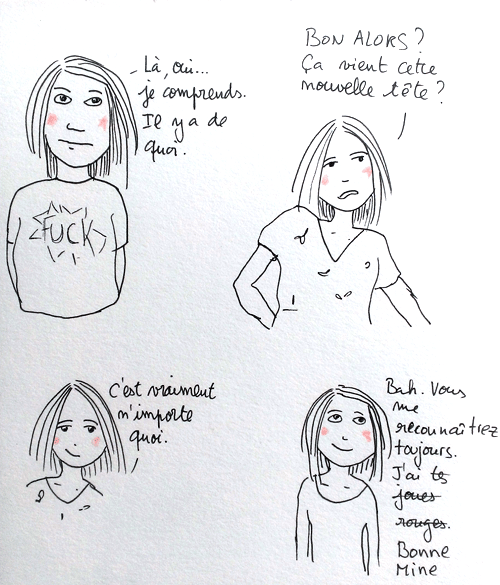 Là, oui...
je comprends.
Il y a de
quoi.
FUCK
BON ALORS?
Ça vient cette
nouvelle tête?
C'est vraiment
n'importe
quoi.
Bah. Vous
me
reconnaîtrez
toujours.
J'ai les
joues
rouges.
Bonne
Mine